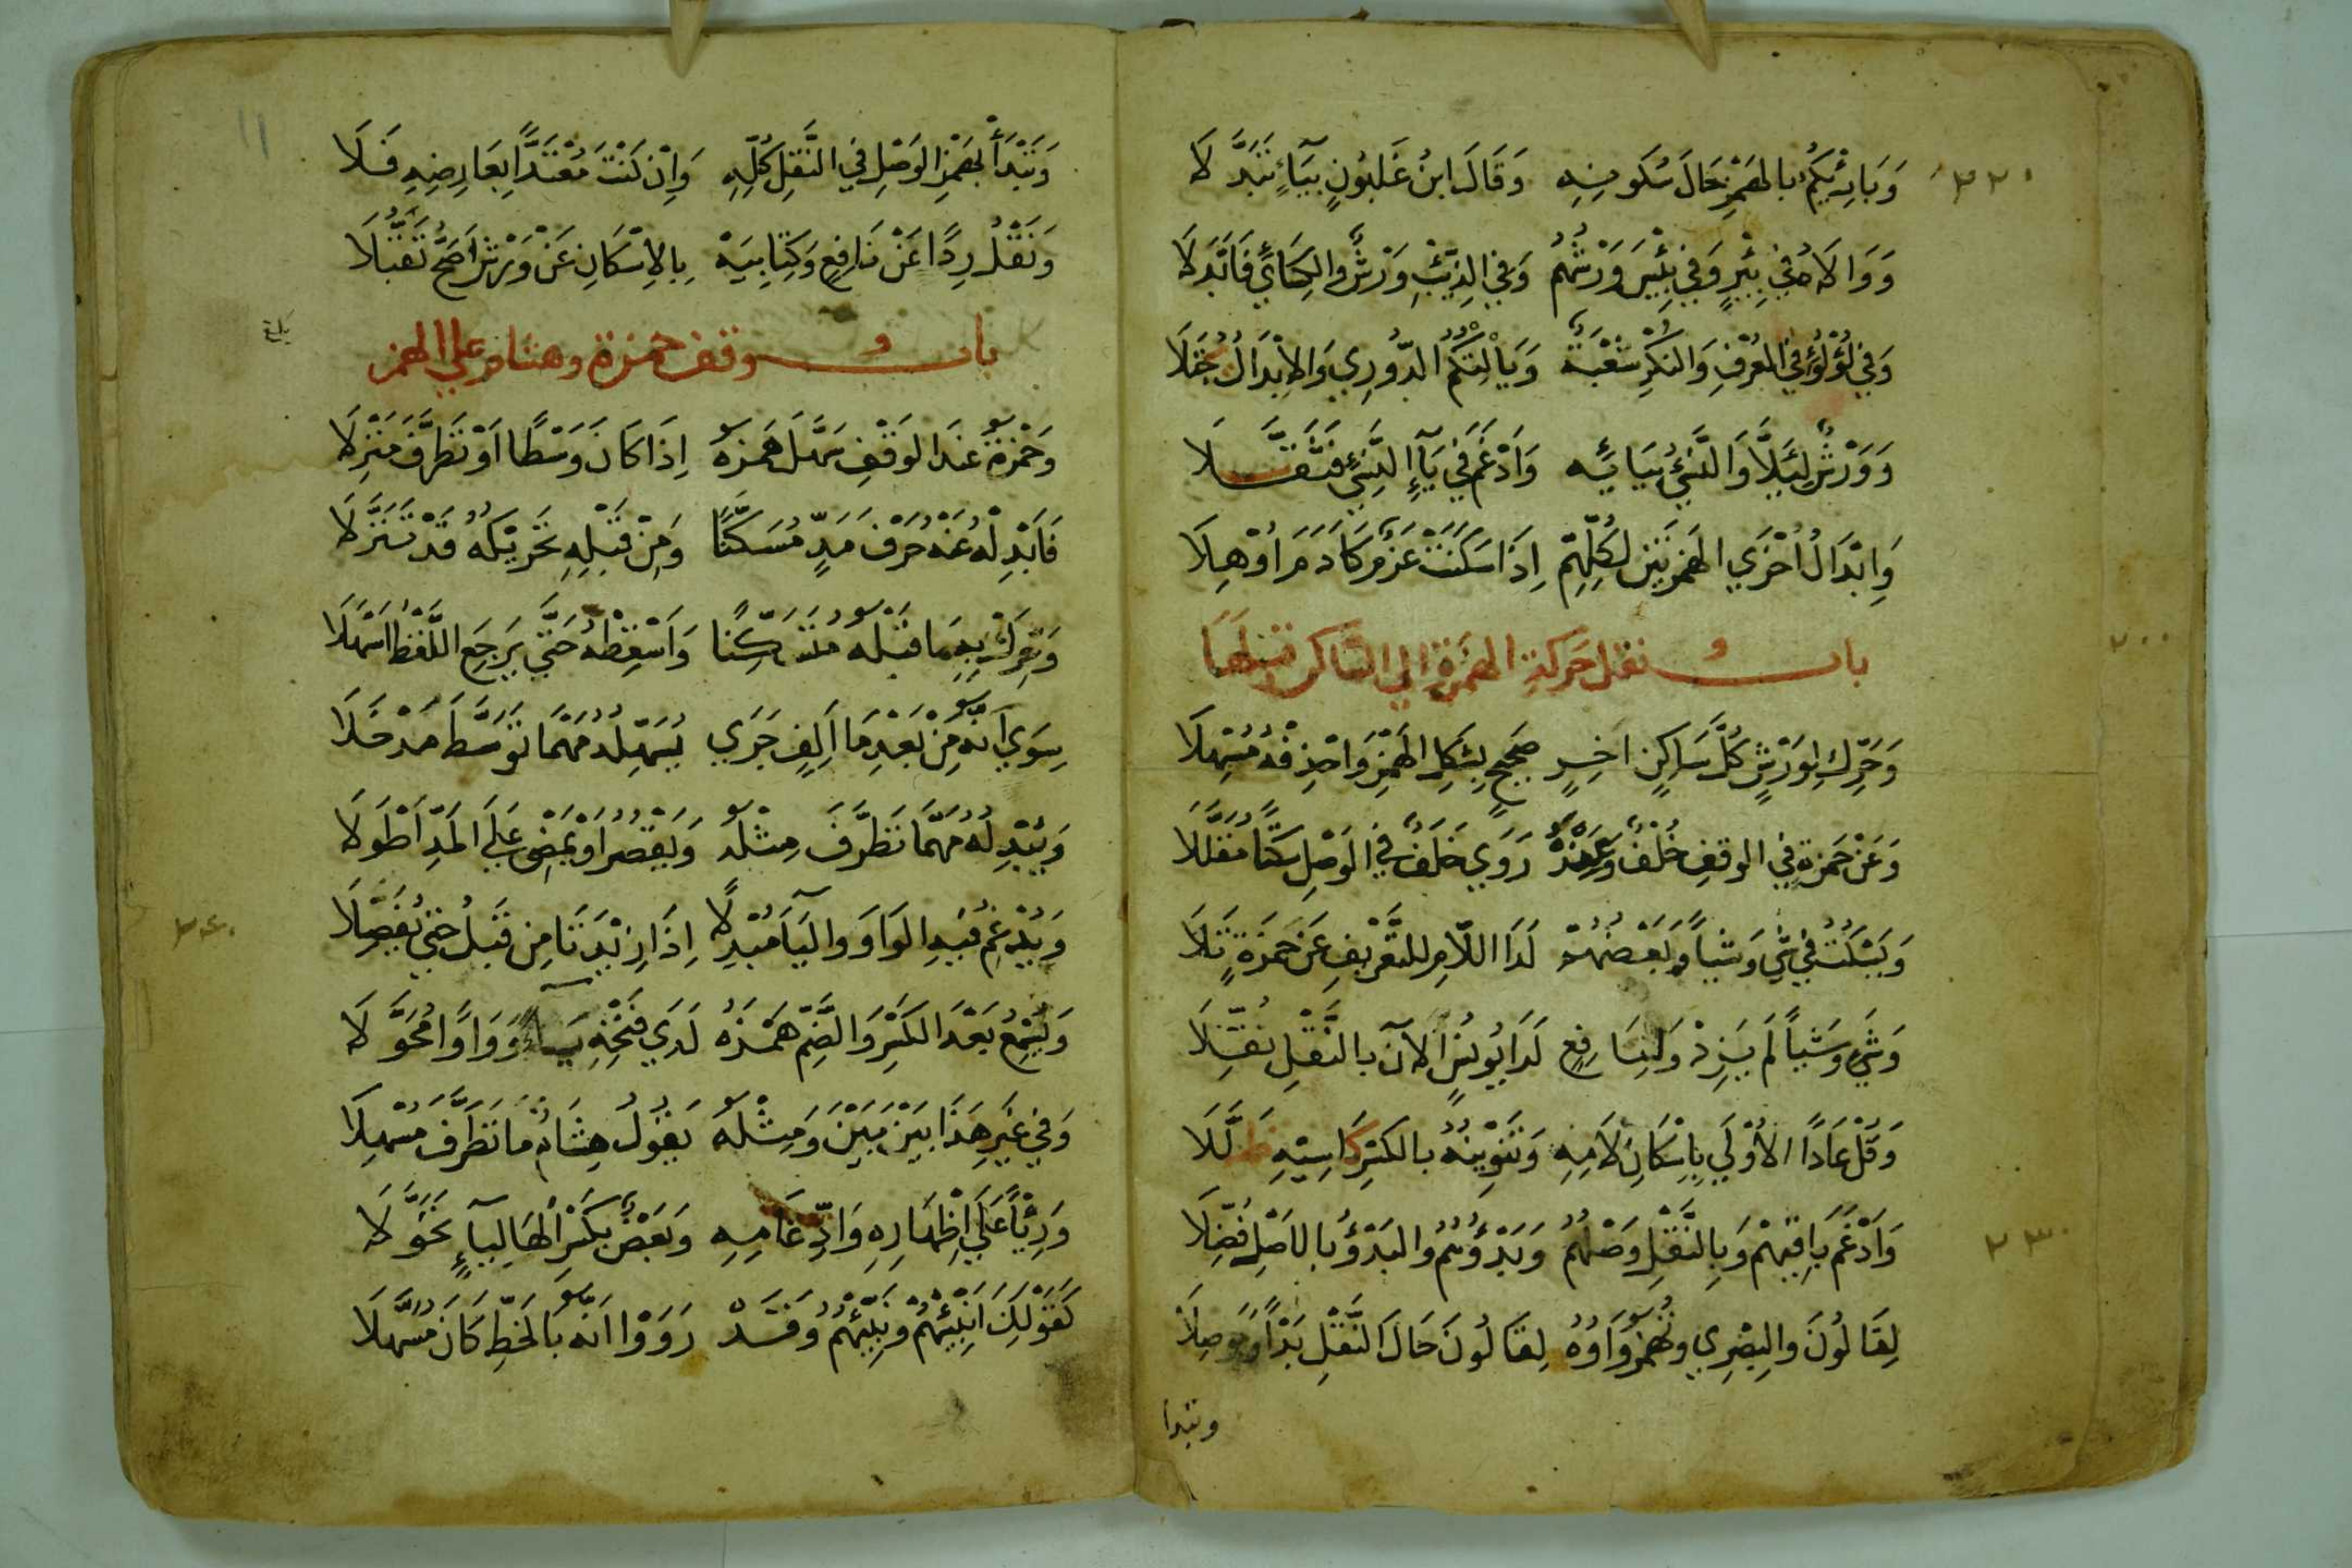 ٢٢٠
وَبَارِئِكُم بالهَمْزِ حَالَ سُكُونِهِ وَقَالَ ابنُ غَلبُونٍ بيَآءٍ تَبَدَّلَا
وَوَالَاهُ في بِئْرٍ وَفي بِئْسَ وَرْشُهُمْ وَفي الذِّئْبِ وَرْشٌ والكِسَائي فَابْدَلَا
وَفي لُؤْلُؤٍ في العُرْفِ وَالنكْرِ شُعْبَةٌ وَيَأْلِتْكُمُ الدُّورِي وَالاِبْدَالُ يُجْتَلَا
وَوَرْشٌ لِئَلَّا وَالنَّسِيُّ بيَائِه وَاَدْغَمَ في يَآءِ النَّسِيِّ فَثَقَّلَا
وَاِبْدَالُ اُخْرَي الهَمْزَتَيْنِ لِكُلِّهِمْ اِذَا سَكَنَتْ عَزْمٌ كَآدَمَ اوْهِلَا
باب نقل حَركةِ الهمْزَةِ الي السّاكن قبلهَا
وَحَرِّكْ لِوَرْشٍ كُلَّ سَاكِنٍ اخِرٍ صَحِيحٍ بِشَكْلِ الهَمْزِ وَاحْذِفْهُ مُسْهِلَا
وَعَنْ حَمْزةٍ في الوقفِ خُلْفٌ وَعِنْدَهُ رَوَي خَلَفٌ في الوَصْلِ سَكْتًا مُقَلَّلَا
وَيَسْكُتُ في شَيٍ وَشَيأً وَبَعْضُهُمْ لَدَا اللّامِ للتَّعْرِيفِ عَن حَمْزَةٍ تَلَا
وَشَيٍ وَشَيأً لَم يَزِدْ وَلِنَافِعٍ لَدَا يُونُسٍ الآنَ بالنَّقْلِ نُقِّلَا
وَقُلْ عَادًا الاُوْلَي بِاِسْكَانِ لَامِهِ وَتَنْوِينُهُ بالكَسْرِ كَاسِيهِ ظَلَّلَا
وَاَدْغَمَ بَاقِيهِمْ وَبِالنَّقْلِ وَصْلُهُمْ وَبَدْؤُهُمُ والبَدْؤُ بالاصْلِ فُضِّلَا
٢٣٠
لِقَالُونَ والبِصْرِي وَتُهْمَزُ وَاوُهُ لِقَالُونَ حَالَ النَّقْلِ بَدْأً وَمَوْصِلَا
وتبدا
١١
وَتَبْدَأْ بهَمْزِ الوَصْلِ في النَّقْلِ كُلِّهِ وَاِنْ كُنْتَ مُعْتَدًّا بِعَارِضِهِ فَلَا
وَنَقْلُ رِدًا عَنْ نَافِعٍ وَكِتَابِيَهْ بِالاِسْكَانِ عَنْ وَرْشٍ اَصَحُّ تَقَبُّلَا
باب وقف حمزة وهشام علي الهمز
وَحَمْزَةُ عِنْدَ الوَقْفِ سَهَّلَ هَمْزَهُ اِذَا كَانَ وَسْطًا اَوْ تَطَرَّفَ مَنْزِلَا
فَابْدِلْهُ عَنْهُ حَرْفَ مَدٍّ مُسَكَّنًا وَمِنْ قَبْلِهِ تَحْرِيكُهُ قَدْ تَنَزَّلَا
وَحَرِّكْ بِهِ مَا قَبْلَهُ مُتَسَكِّنًا وَاَسْقِطْهُ حَتَّي يَرجِعَ اللَّفْظُ اَسْهَلَا
سِوَي اَنَّهُ مِنْ بَعْدِ مَا اَلِفٍ جَرَي يُسَهِّلُهُ مَهْمَا تَوَسَّطَ مَدْخَلَا
وَيُبْدِلُهُ مَهْمَا تَطَرَّفَ مِثْلَهُ وَيَقْصُرُ اَوْ يَمْضِي عَلَي المَدِّ اَطْوَلَا
وَيُدْغِمُ فِيهِ الوَاوَ واليَآءَ مُبْدِلًا اِذَا زِيْدَتَا مِن قَبْلُ حَتّي يُفَصِّلَا
٢٤٠
وَيُسْمِعُ بَعْدَ الكَسْرِ وَالضَّمِّ هَمْزَهُ لَدَي فَتْحِهِ يَآءً وَوَاوًا مُحَوَّلَا
وَفي غَيْرِ هَذَا بَيْنَ بَيْنَ وَمِثْلُهُ يَقُولُ هِشَامٌ مَا تَطَرَّفَ مُسْهِلَا
وَرِئْيًا عَلَي اِظْهَارِهِ وَادِّغَامِهِ وَبَعْضٌ بِكَسْرِ الْهَا لِيَآءٍ تَحَوَّلَا
كَقَوْلِكَ اَنْبِئْهُمْ وَنَبِّئْهُمْ وَقَدْ رَوَوْا اَنَّهُ بِالخَطِّ كَانَ مُسَهَّلَا